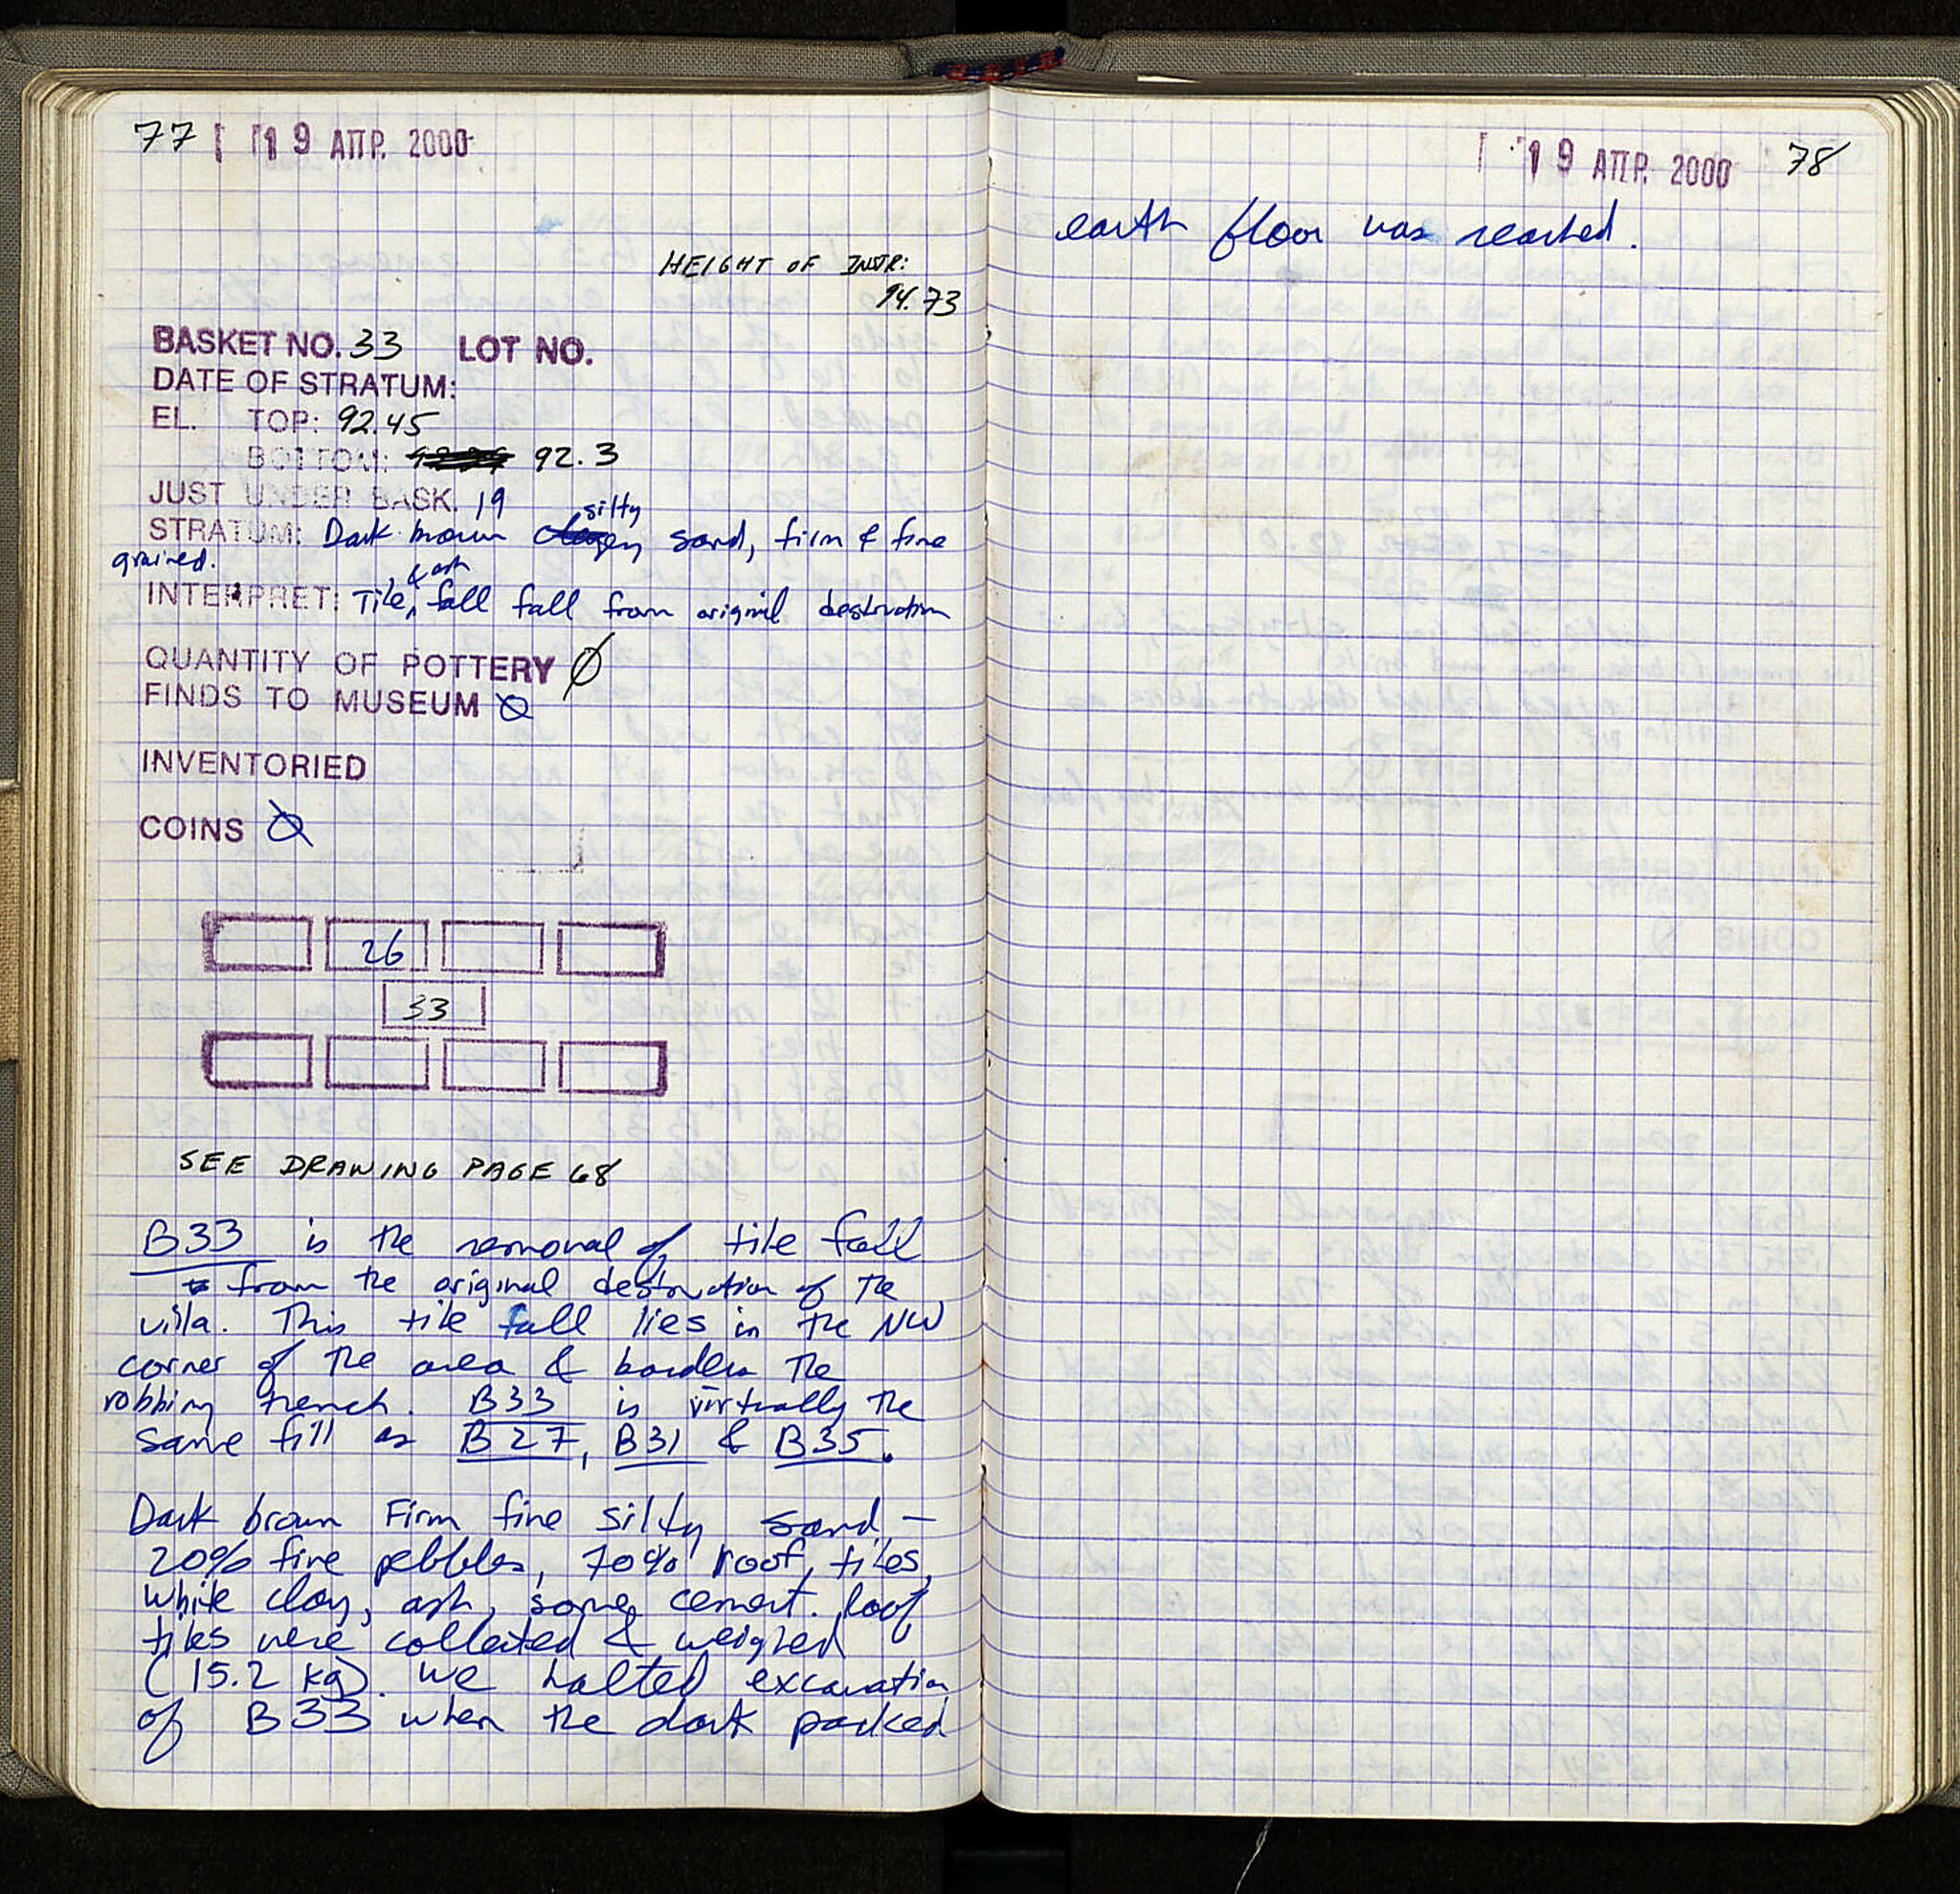 77 19 ΑΠΡ. 2000
HEIGHT OF INSTR:
94.73
BASKET NO. 33 LOT NO.
DATE OF STRATUM:
EL. TOP: 92.45
BOTTOM: 92.3
JUST UNDER BASK. 19
silty
STRATUM: Dark brown sand, firm & fine
grained.
, & ash
INTERPRET: Tile fall fall from original destruction
QUANTITY OF POTTERY Ø
FINDS TO MUSEUM Ø
INVENTORIED
COINS Ø
26
33
SEE DRAWING PAGE 68
B33 is the removal of tile fall
from the original destruction of the
villa. This tile fall lies in the NW
corner of the area & borders the
robbing trench. B33 is virtually the
same fill as B27, B31 & B35.
Dark brown Firm fine silty sand -
20% fine pebbles, 70% roof tiles,
white clay, ash, some cement. Roof
tiles were collected & weighed
(15.2 kg). We halted excavation
of B33 when the dark packed
19 ΑΠΡ. 2000 78
earth floor was reached.